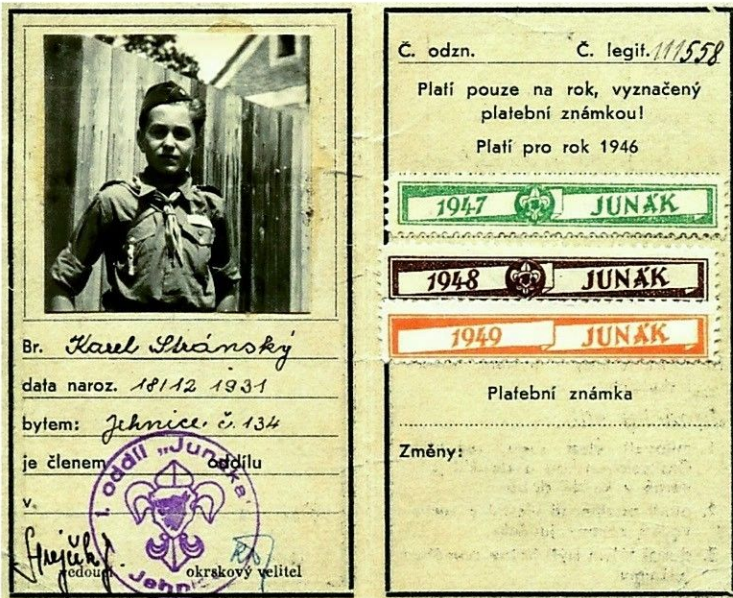 Br. Karel Stránský
data naroz. 18/12 1931
bytem: Jehnice č. 134
je členem oddílu
v
1. oddíl „Junáka"
Jehnice
vedoucí okrskový velitel
Č. odzn. Č. legit. 111558
Platí pouze na rok, vyznačený
platební známkou!
Platí pro rok 1946
1947 JUNÁK
1948 JUNÁK
1949 JUNÁK
Platební známka
Změny: